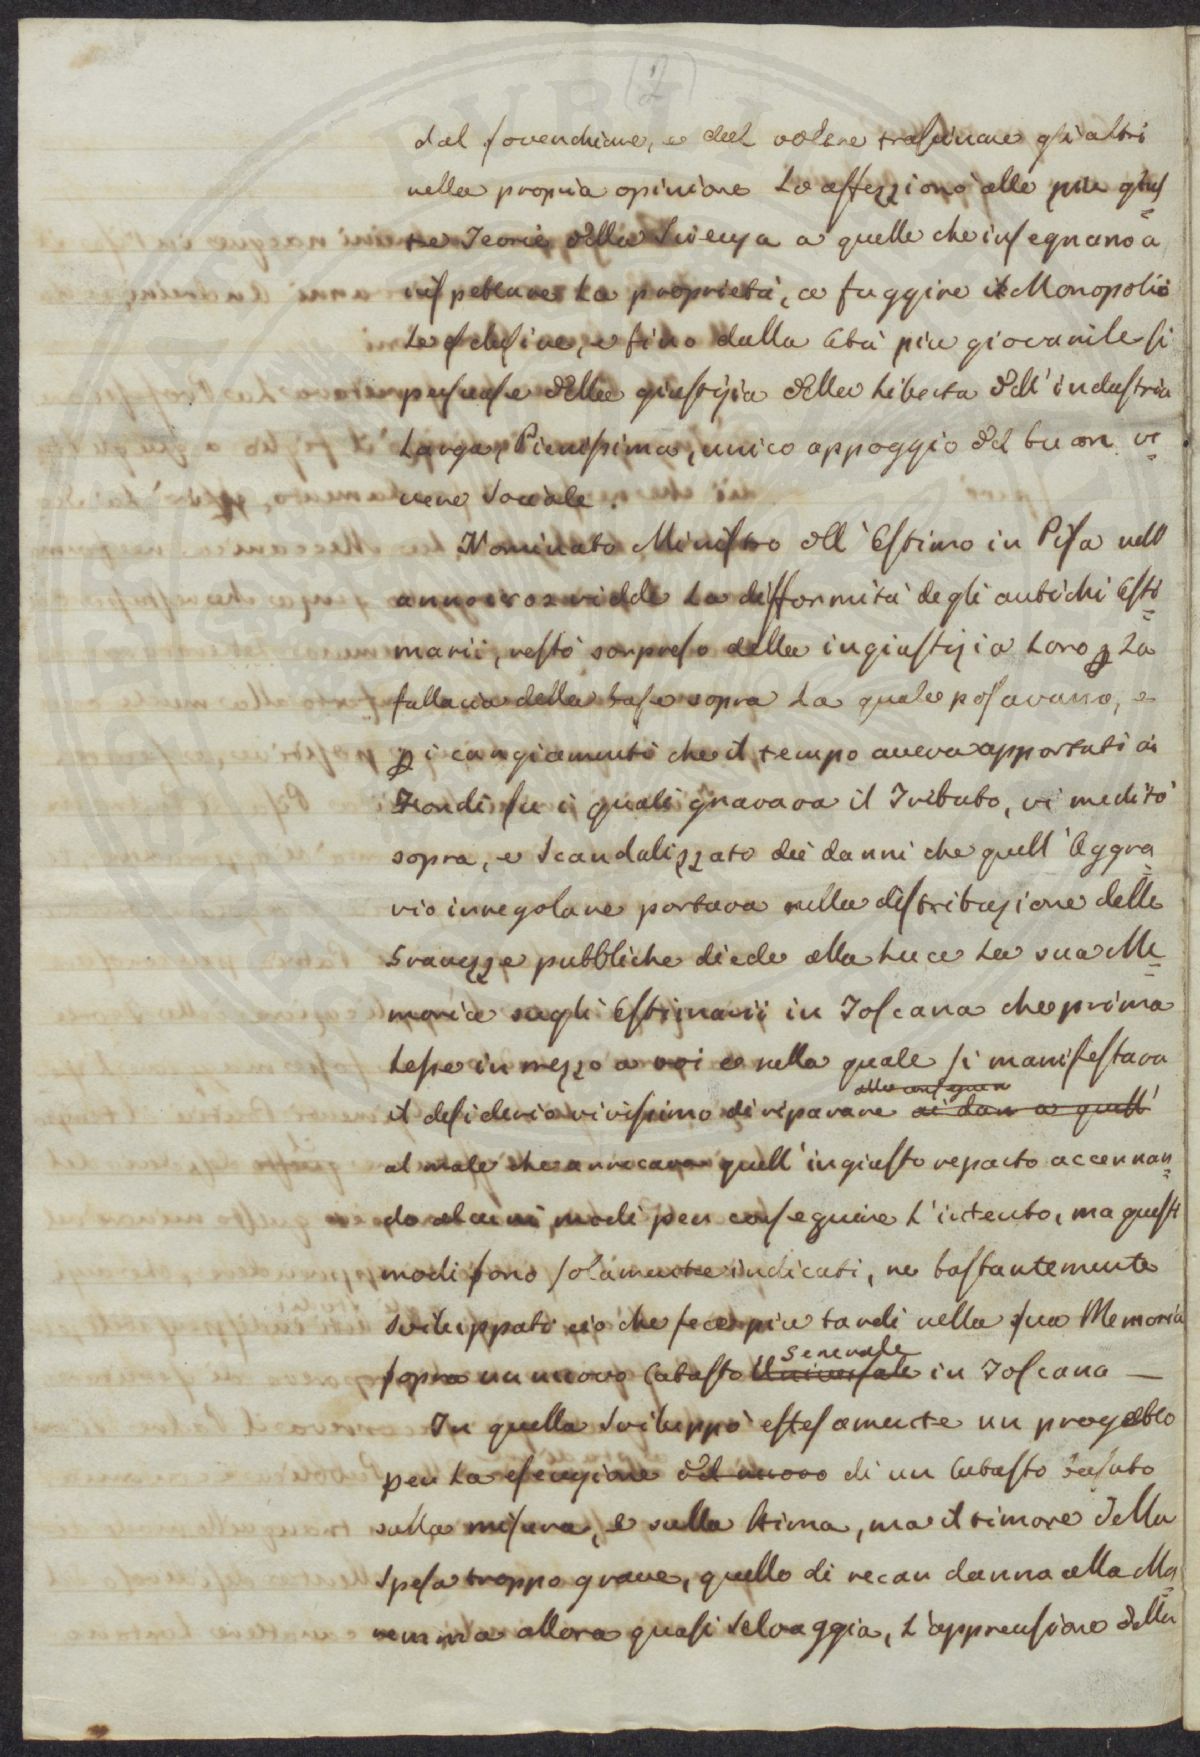 (2)
dal soverchiare, e dal volere trascinare gli altri
nella propria opinione Lo affezzionò alle più gius=
te Teorie della Scienza a quelle che insegnano a
rispettare La proprietà, a fuggire il Monopolio
Le esclusive, e fino dalla età più giovanile si
persuase della giustizia della Libertà dell'industria
Larga, Pienissima, unico appoggio del buon vi=
vere Sociale.
Nominato Ministro dell'Estimo in Pisa nell
anno 1802 vidde La difformità degli antichi Esti=
marii, restò sorpreso della ingiustizia Loro p La
fallacia della base sopra La quale posavano, e
p i cangiamenti che il tempo aveva apportati ai
Fondi su i quali gravava il Tributo, vi meditò
sopra, e Scandalizzato dei danni che quell'Aggra=
vio irregolare portava nella distribuzione delle
Gravezze pubbliche diede alla Luce La sua Me=
moria sugli Estimarii in Toscana che prima
Lesse in mezzo a voi e nella quale si manifestava
il desiderio vivissimo di riparare ai dan a quell'
al male che arrecava quell'ingiusto reparto accennan=
do alcuni modi per conseguire L'intento, ma questi
modi sono solamente indicati, ne bastantemente
Sviluppati ciò che fece più tardi nella sua Memoria
sopra un nuovo Catasto Universale Generale in Toscana —
In quella Sviluppò estesamente un progetto
per La esecuzione del nuovo di un Catasto basato
sulla misura, e sulla Stima, ma il timore della
Spesa troppo grave, quello di recar danno alla Ma=
remma allora quasi Selvaggia, L'apprensione della